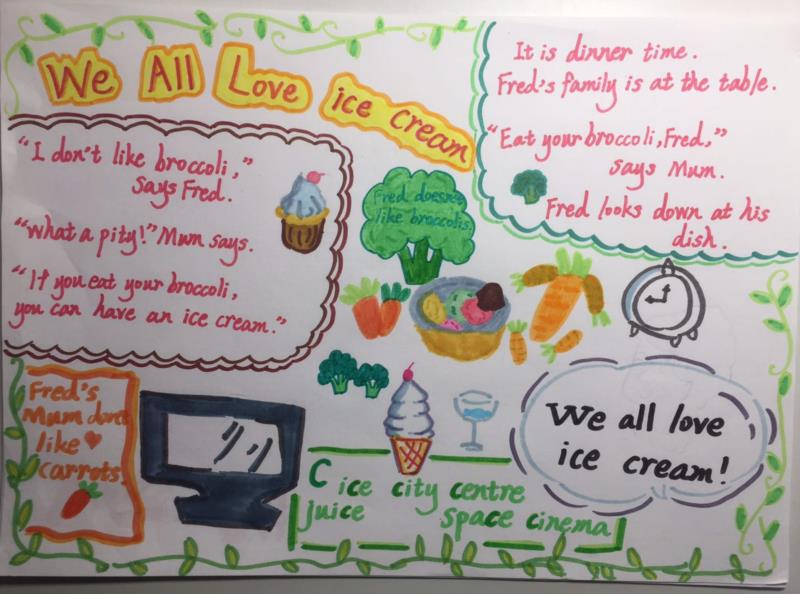 We All Love ice cream
It is dinner time.
Fred's family is at the table.
"Eat your broccoli, Fred,"
says Mum.
Fred looks down at his
dish.
"I don't like broccoli,"
says Fred.
"What a pity!" Mum says.
"If you eat your broccoli,
you can have an ice cream."
Fred doesn't
like broccolis
Fred's
Mum don't
like
carrots
C ice city centre
juice space cinema
We all love
ice cream!